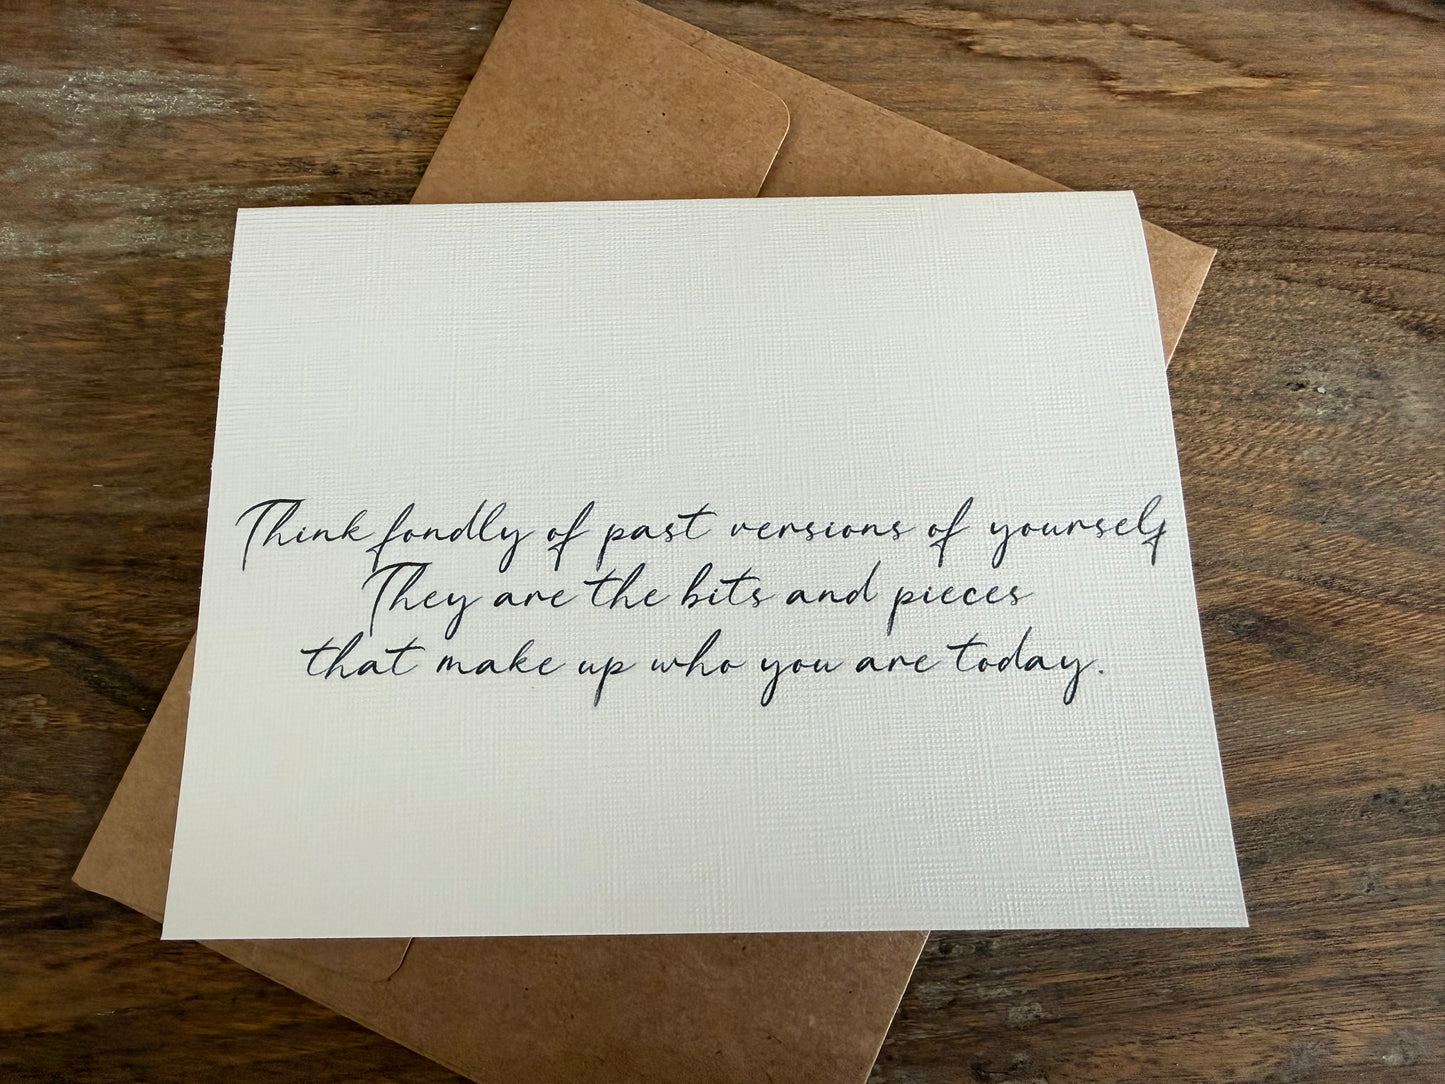 Think fondly of past versions of yourself
They are the bits and pieces
that make up who you are today.